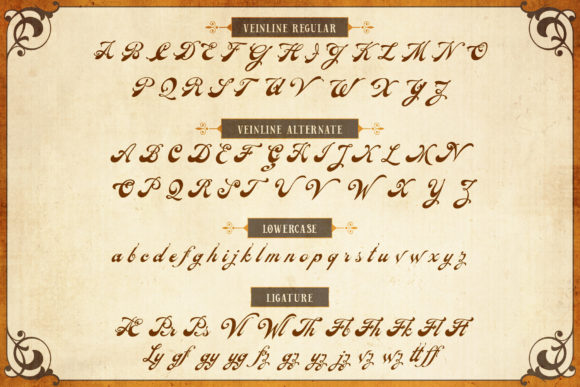 VEINLINE REGULAR
A B C D E F G H I J K L M N O
P Q R S T U V W X Y Z
VEINLINE ALTERNATE
A B C D E F G H I J K L M N
O P Q R S T U V W X Y Z
LOWERCASE
a b c d e f g h i j k l m n o p q r s t u v w x y z
LIGATURE
Æ Pr Ps Vl Wl Th
Ly gf gy yg fz gz yz jz vz wz tt ff